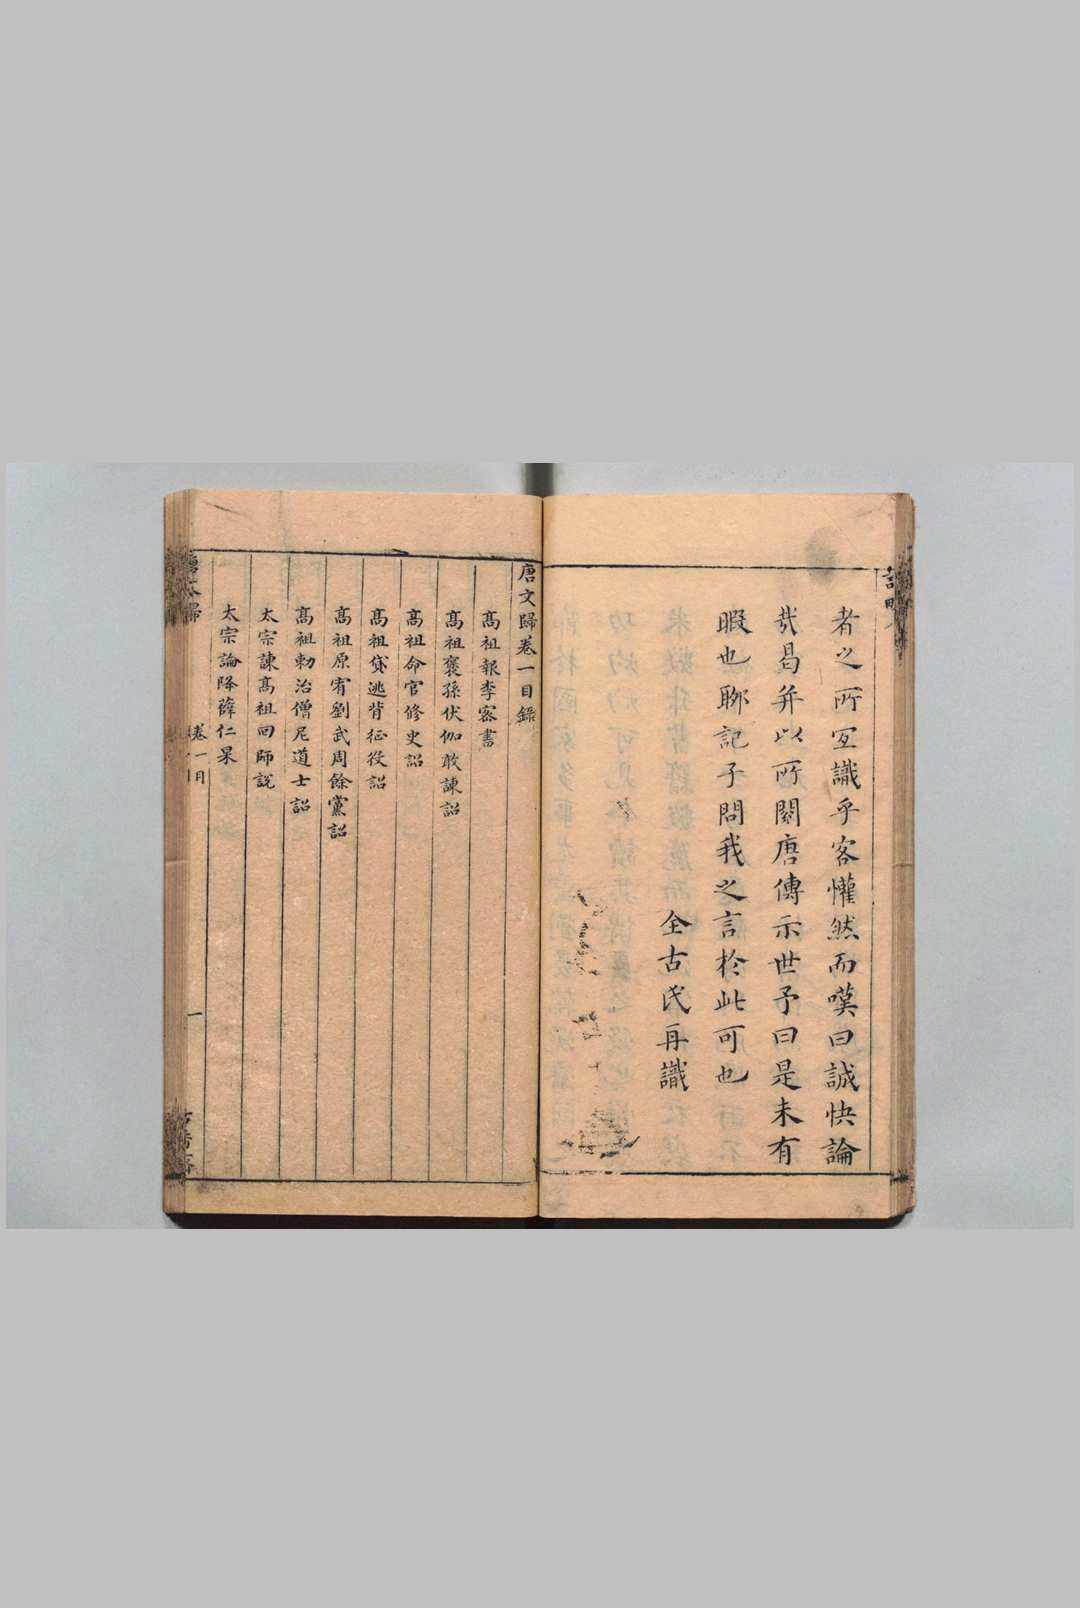 者之所宐識乎客懽然而嘆曰誠快論
哉曷并以所閱唐傳示世予曰是未有
暇也聊記子問我之言於此可也
仝古氏再識
唐文歸卷一目錄
高祖報李密書
高祖褒孫伏伽敢諫詔
高祖命官修史詔
高祖貸逃背征役詔
高祖原宥劉武周餘黨詔
高祖勑治僧尼道士詔
太宗諫高祖回師說
太宗論降薛仁杲
卷一目
一